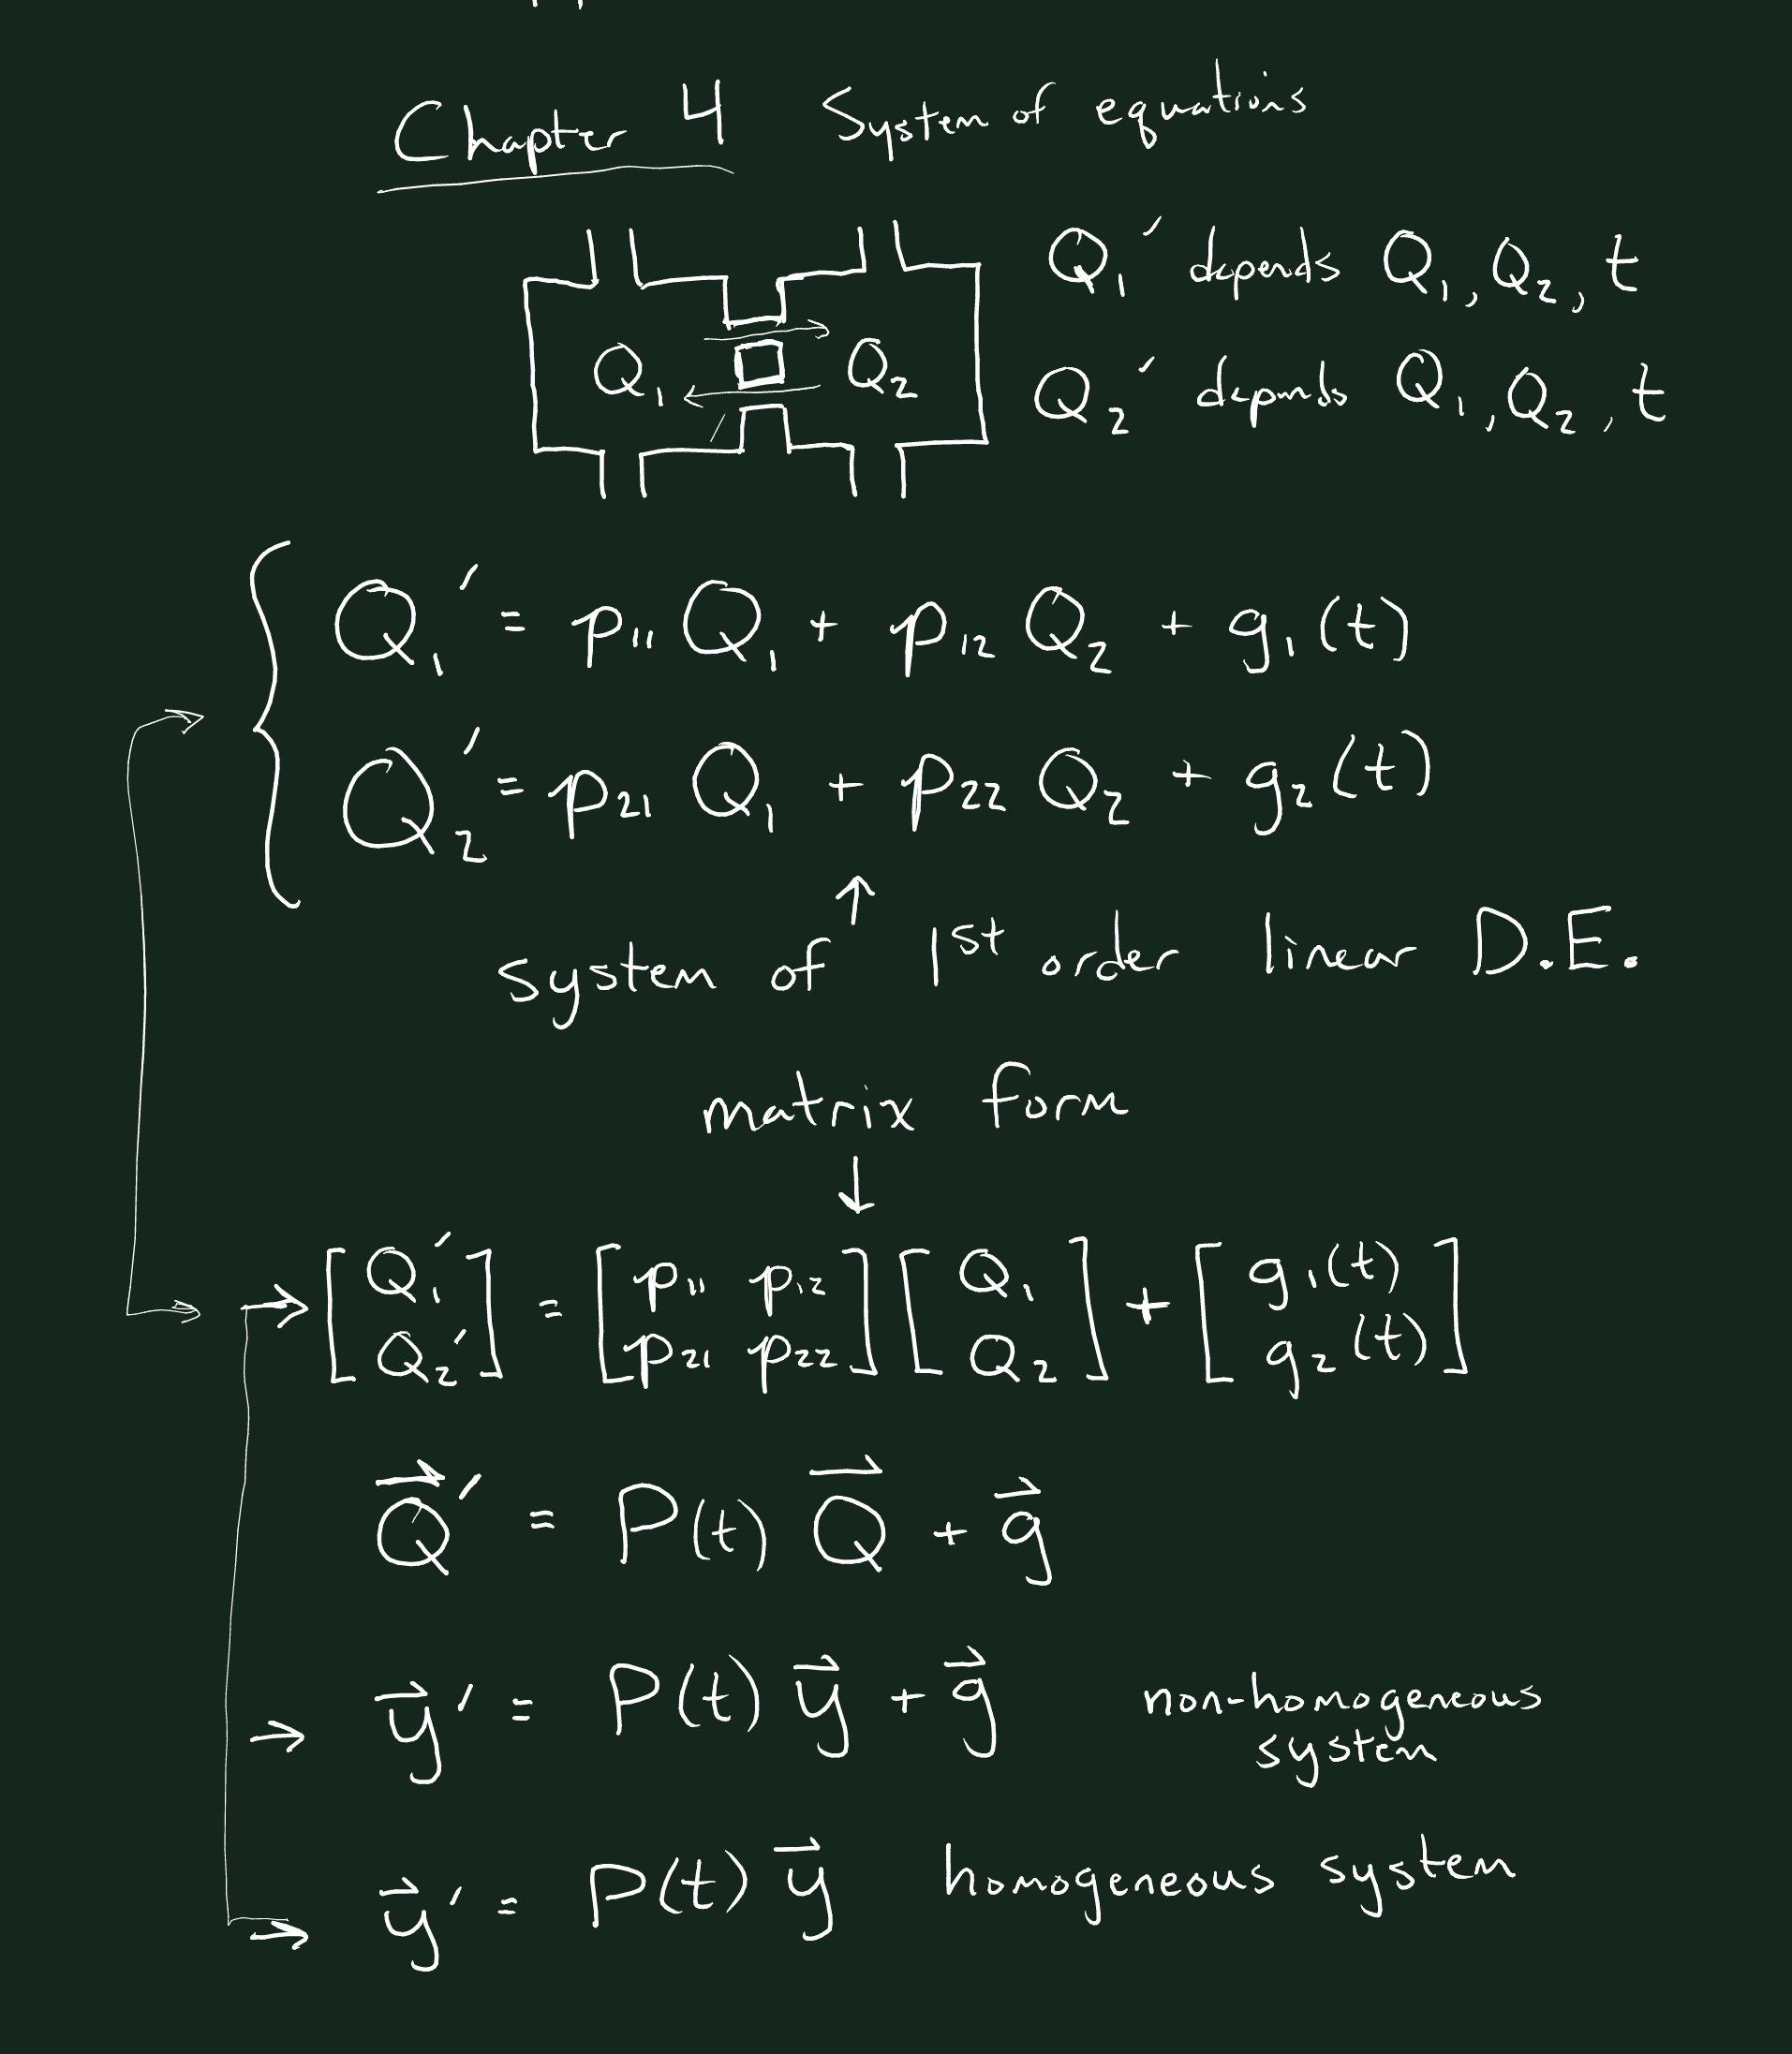 Chapter 4 System of equations
Q₁' depends Q₁, Q₂, t
Q₁ Q₂
Q₂' depends Q₁, Q₂, t
Q₁' = p₁₁ Q₁ + p₁₂ Q₂ + g₁(t)
Q₂' = p₂₁ Q₁ + p₂₂ Q₂ + g₂(t)
↑
system of 1st order linear D.E.
matrix form
↓
→ [Q₁' = [p₁₁ p₁₂] [Q₁] + [g₁(t)]
Q₂'] [p₂₁ p₂₂] [Q₂] [g₂(t)]
Q⃗' = P(t) Q⃗ + g⃗
→ y⃗' = P(t) y⃗ + g⃗ non-homogeneous
system
→ y⃗' = P(t) y⃗ homogeneous system